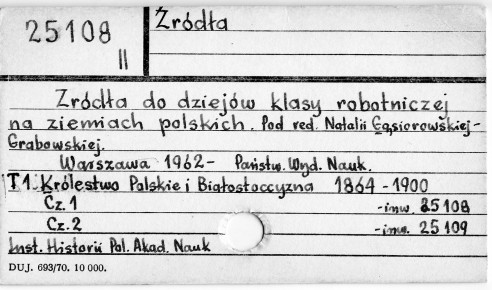 25108
II
Źródła
Źródła do dziejów klasy robotniczej
na ziemiach polskich. Pod red. Natalii Gąsiorowskiej-
Grabowskiej.
Warszawa 1962- Państw. Wyd. Nauk.
T 1. Królestwo Polskie i Białostocczyzna 1864-1900
Cz. 1 -inw. 25108
Cz. 2 -inw. 25109
Inst. Historii Pol. Akad. Nauk
DUJ. 693/70. 10 000.